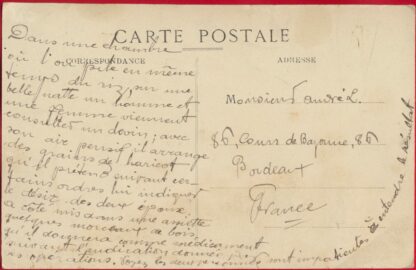 CARTE POSTALE
CORRESPONDANCE
ADRESSE
Dans une chambre
où l'on pile en même
temps du riz, sur une
belle natte un homme et
une femme viennent
consulter un devin; avec
son air pensif il arrange
des grains de haricot
qu'il prétend suivant cer-
tains ordres lui indiquer
le désir des deux époux.
à côté mis dans une assiette
quelques morceaux de bois
qu'il donnera comme médicament
suivant indication donnée
opérations. Voyez les deux
sont impatients
d'entendre le résultat
Monsieur André L.
86, Cours de Bayonne, 86
Bordeaux
France